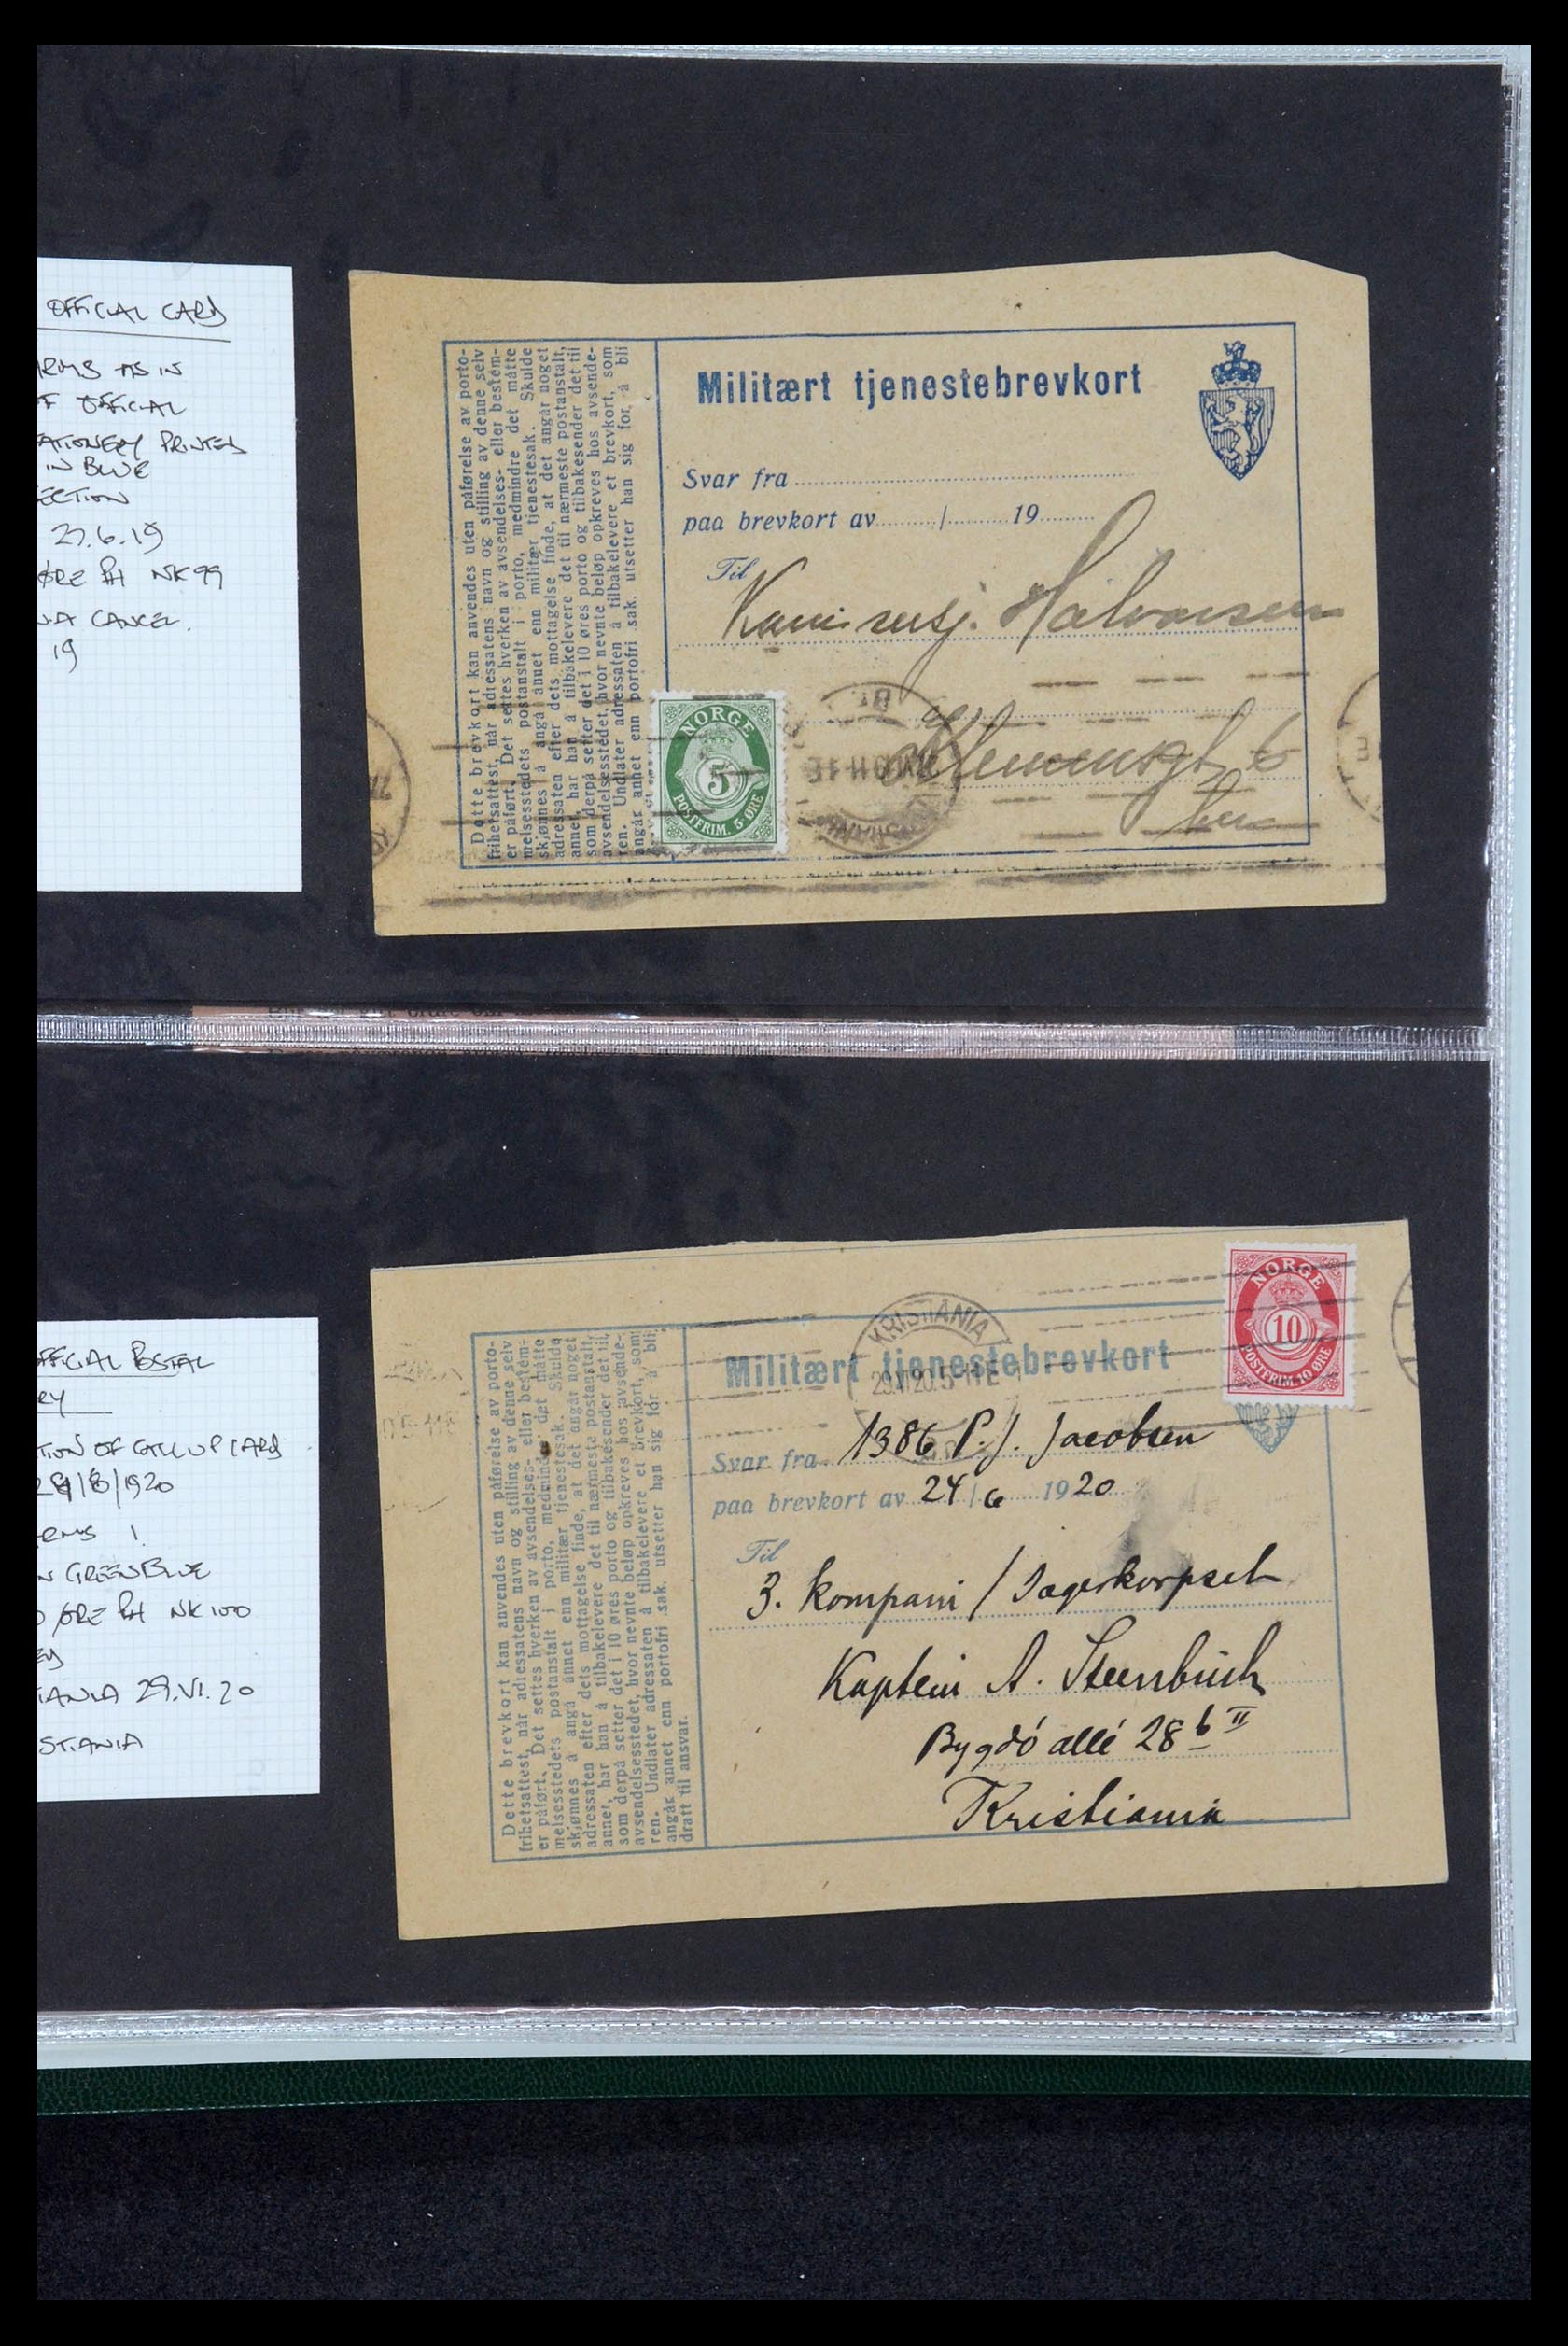 OFFICIAL CARD
RMS AS IN
OF OFFICIAL
STATIONERY PRINTED
IN BLUE
ECTION
27.6.19
ØRE PH NK 99
NIA CANCEL.
19
Dette brevkort kan anvendes uten påførelse av porto-
frihetsattest, når adressatens navn og stilling av denne selv
er påført. Det settes hverken av avsendelses- eller bestem-
melsesstedets postanstalt i porto, medmindre det måtte
skjønnes å angå annet enn militær tjenestesak. Skulde
adressaten efter dets mottagelse finde, at det angår noget
annet, har han å tilbakelevere det til nærmeste postanstalt,
som derpå setter det i 10 øres porto og tilbakesender det til
avsendelsesstedet, hvor nevnte beløp opkreves hos avsende-
ren. Undlater adressaten å tilbakelevere et brevkort, som
angår annet enn portofri sak, utsetter han sig for å bli
Militært tjenestebrevkort
Svar fra
paa brevkort av / 19
Til
Halvorsen
NORGE
5
POSTFRIM. 5 ØRE
OFFICIAL POSTAL
RY
TION OF CALLUP CARD
/1920
RMS 1
N GREENBLUE
0 ØRE PH NK 100
EY
IANIA 29.VI.20
STIANIA
Dette brevkort kan anvendes uten påførelse av porto-
frihetsattest, når adressatens navn og stilling av denne selv
er påført. Det settes hverken av avsendelses- eller bestem-
melsesstedets postanstalt i porto, medmindre det måtte
skjønnes å angå annet enn militær tjenestesak. Skulde
adressaten efter dets mottagelse finde, at det angår noget
annet, har han å tilbakelevere det til nærmeste postanstalt,
som derpå setter det i 10 øres porto og tilbakesender det til
avsendelsesstedet, hvor nevnte beløp opkreves hos avsende-
ren. Undlater adressaten å tilbakelevere et brevkort, som
angår annet enn portofri sak, utsetter han sig for å bli
dratt til ansvar.
KRISTIANIA
29.VI.20.5-11E
NORGE
10
POSTFRIM. 10 ØRE
Militært tjenestebrevkort
Svar fra 1386 P. J. Jacobsen
paa brevkort av 24/6 1920
Til
3. kompani / Jægerkorpset
Kaptein A. Steenbuch
Bygdö allé 28 b II
Kristiania